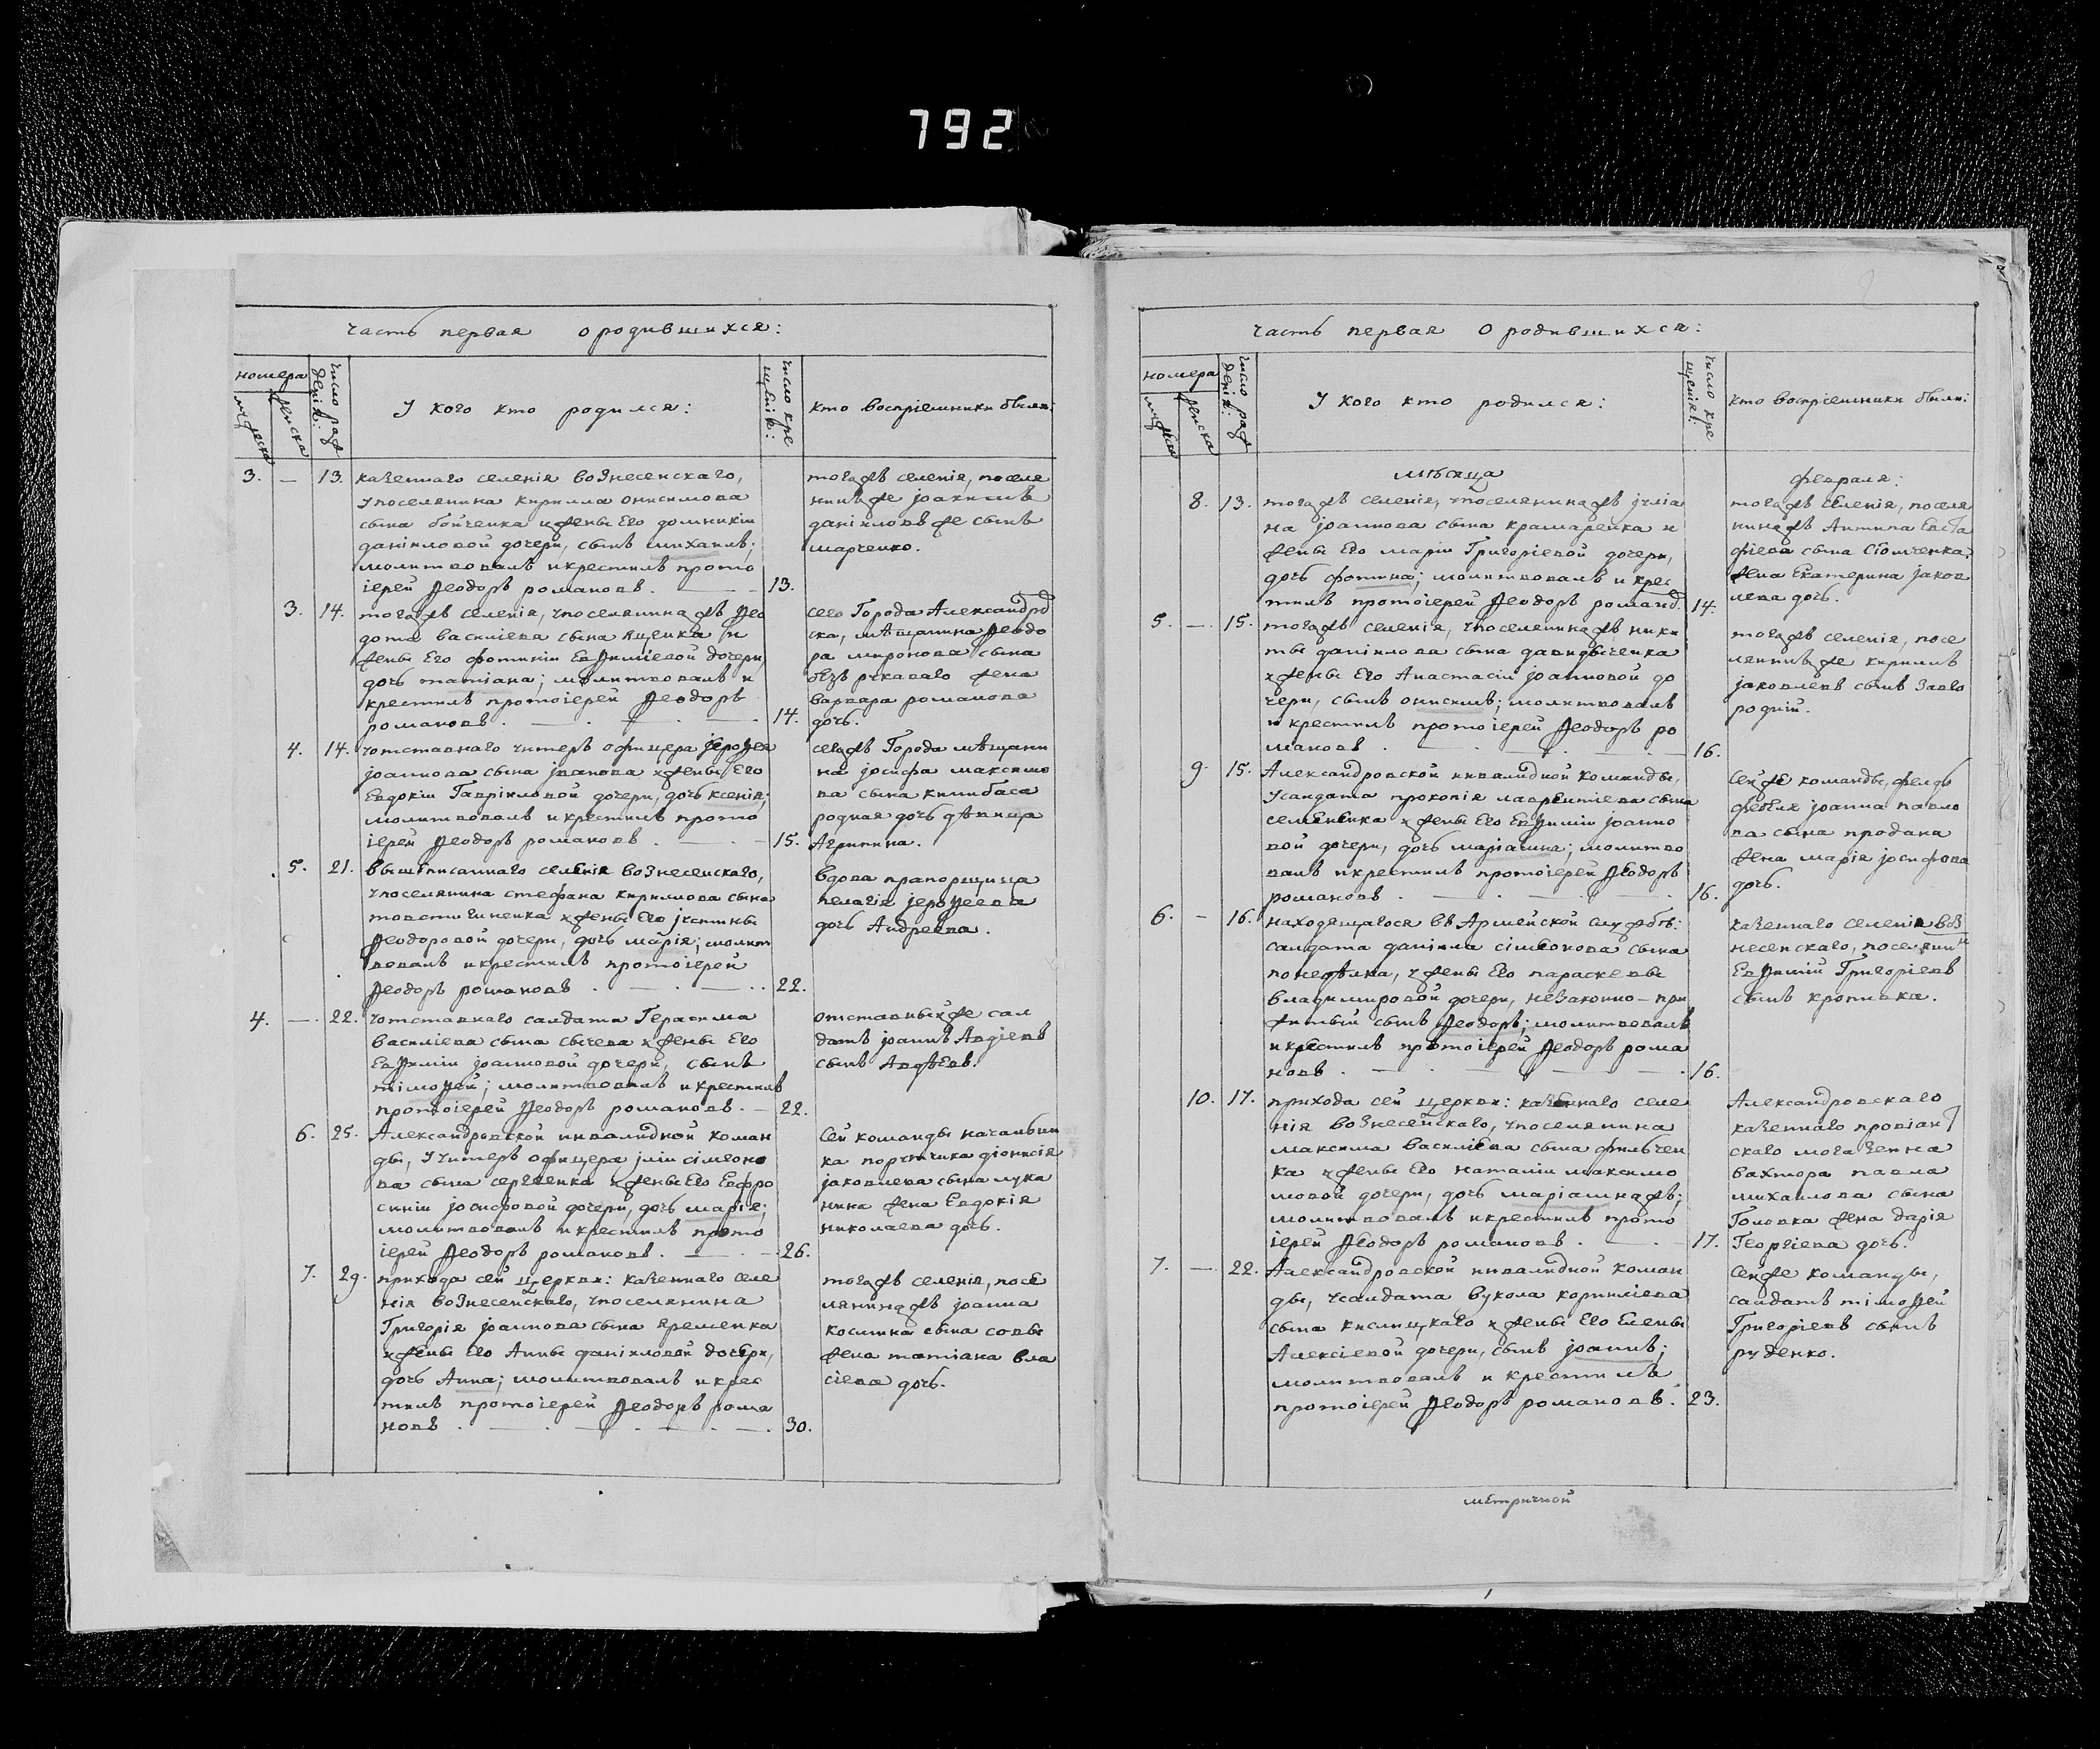 792
часть первая о родившихся:
номера
мужеска
женска
число рождения:
У кого кто родился:
число крещенія:
кто восприемники были:
3. — 13. казеннаго селенія вознесенскаго,
упоселянина кирилла онисимова
сына бойченка ижены Его домникіи
даніиловой дочери, сынъ михаилъ;
молитвовалъ икрестилъ прото
іерей Ѳеодоръ романовъ. 13.
тогожъ селенія, поселя
нинъже іоакимъ
даніиловъ же сынъ
марченко.
3. 14. тогожъ селенія, упоселянина жъ Ѳео
дота василіева сына яценка и
жены Его фотиніи Евѳиміевой дочери
дочь татіана; молитвовалъ и
крестилъ протоіерей Ѳеодоръ
романовъ. 14.
сего Города Александров
ска, мѣщанина Ѳеодо
ра миронова сына
безъ рукаваго жена
варвара романова
дочь.
4. 14. уотставнаго унтеръ офицера іероѳея
іоаннова сына іванова ижены Его
Евдокіи Гавріиловой дочери, дочь ксенія;
молитвовалъ икрестилъ прото
іерей Ѳеодоръ романовъ. 15.
сегожъ Города мѣщани
на іосифа максимо
ва сына килибаса
родная дочь дѣвица
Агрипина.
5. 21. вышеписаннаго селенія вознесенскаго,
упоселянина стефана кирилова сына
товстиченка ижены Его іустины
Ѳеодоровой дочери, дочь марія; молит
вовалъ икрестилъ протоіерей
Ѳеодоръ романовъ. 22.
вдова прапорщица
пелагія іероѳеева
дочь Андреева.
4. — 22. уотставнаго салдата Герасима
василіева сына сычева ижены Его
Евѳиміи іоанновой дочери, сынъ
тімоѳей; молитвовалъ икрестилъ
протоіерей Ѳеодоръ романовъ. — 22.
отставныйже сал
датъ іоаннъ Авдіевъ
сынъ Авдѣевъ.
6. 25. Александровской инвалидной коман
ды, Уунтеръ офицера іліи сімеоно
ва сына сергеенка ижены Его Евфро
синіи іосифовой дочери, дочь марія;
молитвовалъ икрестилъ прото
іерей Ѳеодоръ романовъ. 26.
Сей команды начальни
ка поручика діонисія
іаковлева сына лука
нина жена Евдокія
николаева дочь.
7. 29. прихода сей церкви: казеннаго селе
нія вознесенскаго, упоселянина
Григорія іоаннова сына яременка
ижены Его Анны даніиловой дочери,
дочь Анна; молитвовалъ икрес
тилъ протоіерей Ѳеодоръ рома
новъ. 30.
тогожъ селенія, посе
лянинажъ іоанна
космина сына совы
жена татіана вла
сіева дочь.
часть первая о родившихся:
номера
мужеска
женска
число рождения:
У кого кто родился:
число крещенія:
кто восприемники были:
мѣсяца февраля:
8. 13. тогожъ селенія, упоселянинажъ іуліа
на іоаннова сына крамаренка и
жены Его маріи Григоріевой дочери,
дочь фотина; молитвовалъ икрес
тилъ протоіерей Ѳеодоръ романов. 14.
тогожъ селенія, поселя
нинажъ Антипа Евста
фіева сына Сіомченка
жена Екатерина іаков
лева дочь.
5. — 15. тогожъ селенія, упоселянинажъ ники
ты даніилова сына давидыченка
ижены Его Анастасіи іоанновой до
чери, сынъ онисимъ; молитвовалъ
и крестилъ протоіерей Ѳеодоръ ро
мановъ. 16.
тогожъ селенія, посе
лянинъже кирилъ
іаковлевъ сынъ Заго
родній.
9. 15. Александровской инвалидной команды,
Усалдата прокопія лаврентіева сына
семененка ижены Его Евѳиміи іоанно
вой дочери, дочь маріамна; молитво
валъ икрестилъ протоіерей Ѳеодоръ
романовъ. 16.
Сейже команды, фелдь
фебеля іоанна павло
ва сына продана
жена марія іосифова
дочь.
6. — 16. находящагося въ Армейской службѣ:
салдата даніила сімеонова сына
, ужены Его параскевы
владимировой дочери, незаконно-при
житый сынъ Ѳеодоръ; молитвовалъ
икрестилъ протоіерей Ѳеодоръ рома
новъ. 16.
казеннаго селенія воз
несенскаго, поселянин
Евѳимій Григоріевъ
сынъ кропивка.
10. 17. прихода сей церкви: казеннаго селе
нія вознесенскаго, упоселянина
максима василіева сына фильчен
ка ижены Его наталіи максимо
мовой дочери, дочь маріамнажъ;
молитвовалъ икрестилъ прото
іерей Ѳеодоръ романовъ. 17.
Александровскаго
казеннаго провіант
скаго магазеина
вахтора павла
михаилова сына
Головка жена дарія
Георгіева дочь.
7. — 22. Александровской инвалидной коман
ды, усалдата вукола корниліева
сына кислицкаго ижены Его Елены
Алексіевой дочери, сынъ іоаннъ;
молитвовалъ и крестилъ
протоіерей Ѳеодоръ романовъ. 23.
Сейже команды,
салдатъ тімоѳей
Григоріевъ сынъ
руденко.
метричной